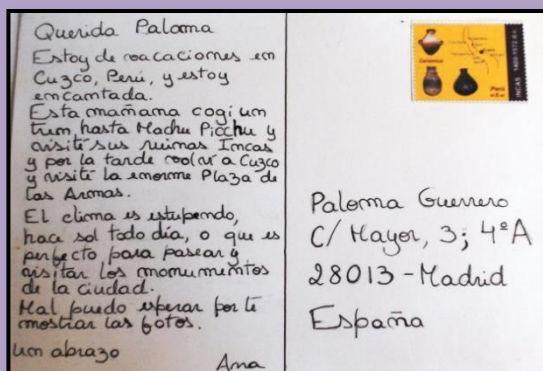 Querida Paloma
Estoy de vacaciones en
Cuzco, Perú, y estoy
encantada.
Esta mañana cogi un
tren hasta Machu Picchu y
visité sus ruinas Incas
y por la tarde volví a Cuzco
y visité la enorme Plaza de
las Armas.
El clima es estupendo,
hace sol todo día, o que es
perfecto para pasear y
visitar los monumentos
de la ciudad.
Mal puedo esperar por te
mostrar las fotos.
un abrazo
Ana
Cerámica
Perú
INCAS
Paloma Guerrero
C/ Mayor, 3; 4ºA
28013 - Madrid
España